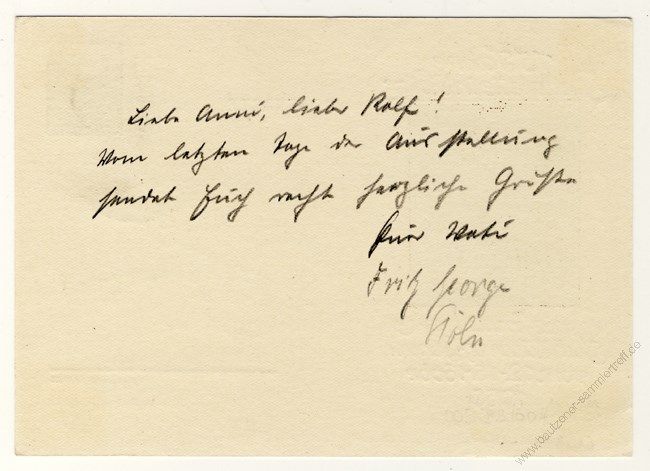 Liebe Anni, lieber Rolf!
Vom letzten Tage der Ausstellung
sendet Euch recht herzliche Grüße
Euer Vati
Fritz George
Köln
www.bautzener-sammlertreff.de